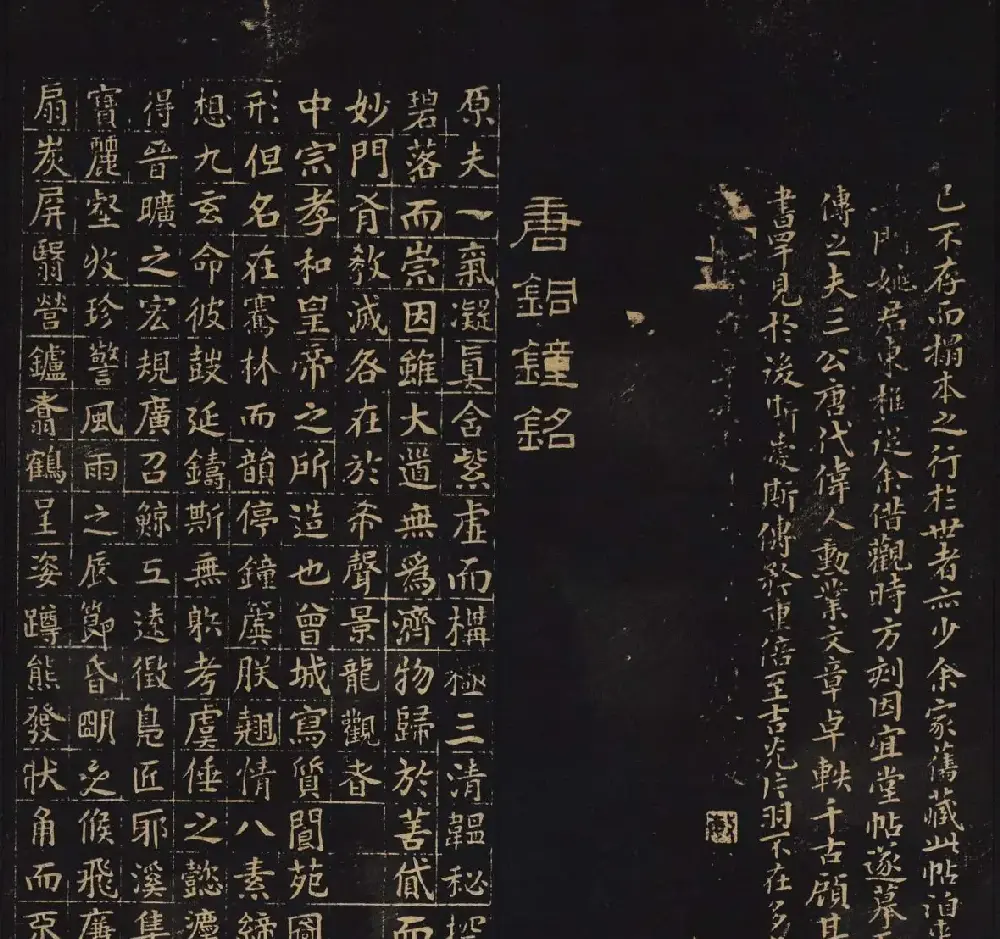 已不存而搨本之行於世者亦少余家舊藏此帖洎
門姚君東樵從余借觀時方刻因宜堂帖遂摹
傳之夫三公唐代偉人勳業文章卓軼千古顧其
書罕見於後重倍至吉光片羽不在多
唐銅鐘銘
原夫一氣凝真含紫虛而構極三清韞秘控
碧落而崇因雖大道無為濟物歸於善貸而
妙門有教滅咎在於希聲景龍觀者
中宗孝和皇帝之所造也曾城寫質閬苑圖
形但名在騫林而韻停鐘簴朕翹情八素締
想九玄命彼鼓延鑄斯無射考虞倕之懿瀍
得晉曠之宏規廣召鯨工遠徵鳧匠耶溪集
寶麗壑收珍警風雨之辰節昏明之候飛廉
扇炭屏翳營鑪翥鶴呈姿蹲熊發狀角而不